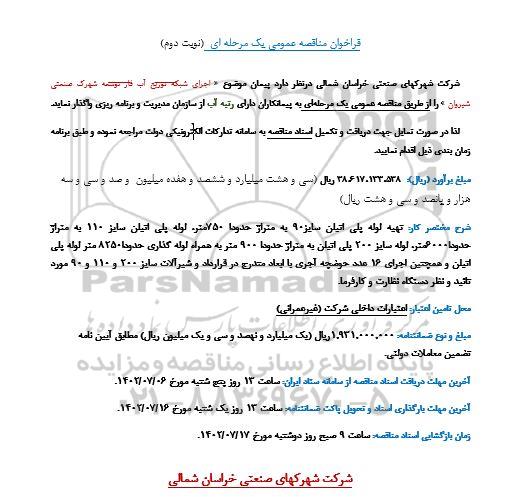 فراخوان مناقصه عمومی یک مرحله ای (نوبت دوم)
شرکت شهرکهای صنعتی خراسان شمالی درنظر دارد پیمان موضوع « اجرای شبکه توزیع آب فاز توسعه شهرک صنعتی
شیروان » را از طریق مناقصه عمومی یک مرحله‌ای به پیمانکاران دارای رتبه آب از سازمان مدیریت و برنامه ریزی واگذار نماید.
لذا در صورت تمایل جهت دریافت و تکمیل اسناد مناقصه به سامانه تدارکات الکترونیکی دولت مراجعه نموده و طبق برنامه
زمان بندی ذیل اقدام نمایید.
مبلغ برآورد (ریال): ۳۸،۶۱۷،۱۳۳،۵۳۸ ریال (سی و هشت میلیارد و ششصد و هفده میلیون و صد و سی و سه
هزار و پانصد و سی و هشت ریال)
شرح مختصر کار: تهیه لوله پلی اتیلن سایز۹۰ به متراژ حدودا ۷۵۰متر. لوله پلی اتیلن سایز ۱۱۰ به متراژ
حدودا۶۰۰۰متر. لوله سایز ۲۰۰ پلی اتیلن به متراژ حدودا ۹۰۰ متر به همراه لوله گذاری حدودا۸۲۵۰ متر لوله پلی
اتیلن و همچنین اجرای ۱۶ عدد حوضچه آجری با ابعاد مندرج در قرارداد و شیرآلات سایز ۲۰۰ و ۱۱۰ و ۹۰ مورد
تائید و نظر دستگاه نظارت و کارفرما.
محل تامین اعتبار: اعتبارات داخلی شرکت (غیرعمرانی)
مبلغ و نوع ضمانتنامه: ۱،۹۳۱،۰۰۰،۰۰۰ریال (یک میلیارد و نهصد و سی و یک میلیون ریال) مطابق آیین نامه
تضمین معاملات دولتی.
آخرین مهلت دریافت اسناد مناقصه از سامانه ستاد ایران: ساعت ۱۳ روز پنج شنبه مورخ ۱۴۰۲/۰۷/۰۶.
آخرین مهلت بارگذاری اسناد و تحویل پاکت ضمانتنامه: ساعت ۱۳ روز یک شنبه مورخ ۱۴۰۲/۰۷/۱۶.
زمان بازگشایی اسناد مناقصه: ساعت ۹ صبح روز دوشنبه مورخ ۱۴۰۲/۰۷/۱۷.
شرکت شهرکهای صنعتی خراسان شمالی
ParsNamadData
پایگاه اطلاع رسانی مناقصه و مزایده
۰۲۱-۸۸۳۴۹۶۷۰-۵